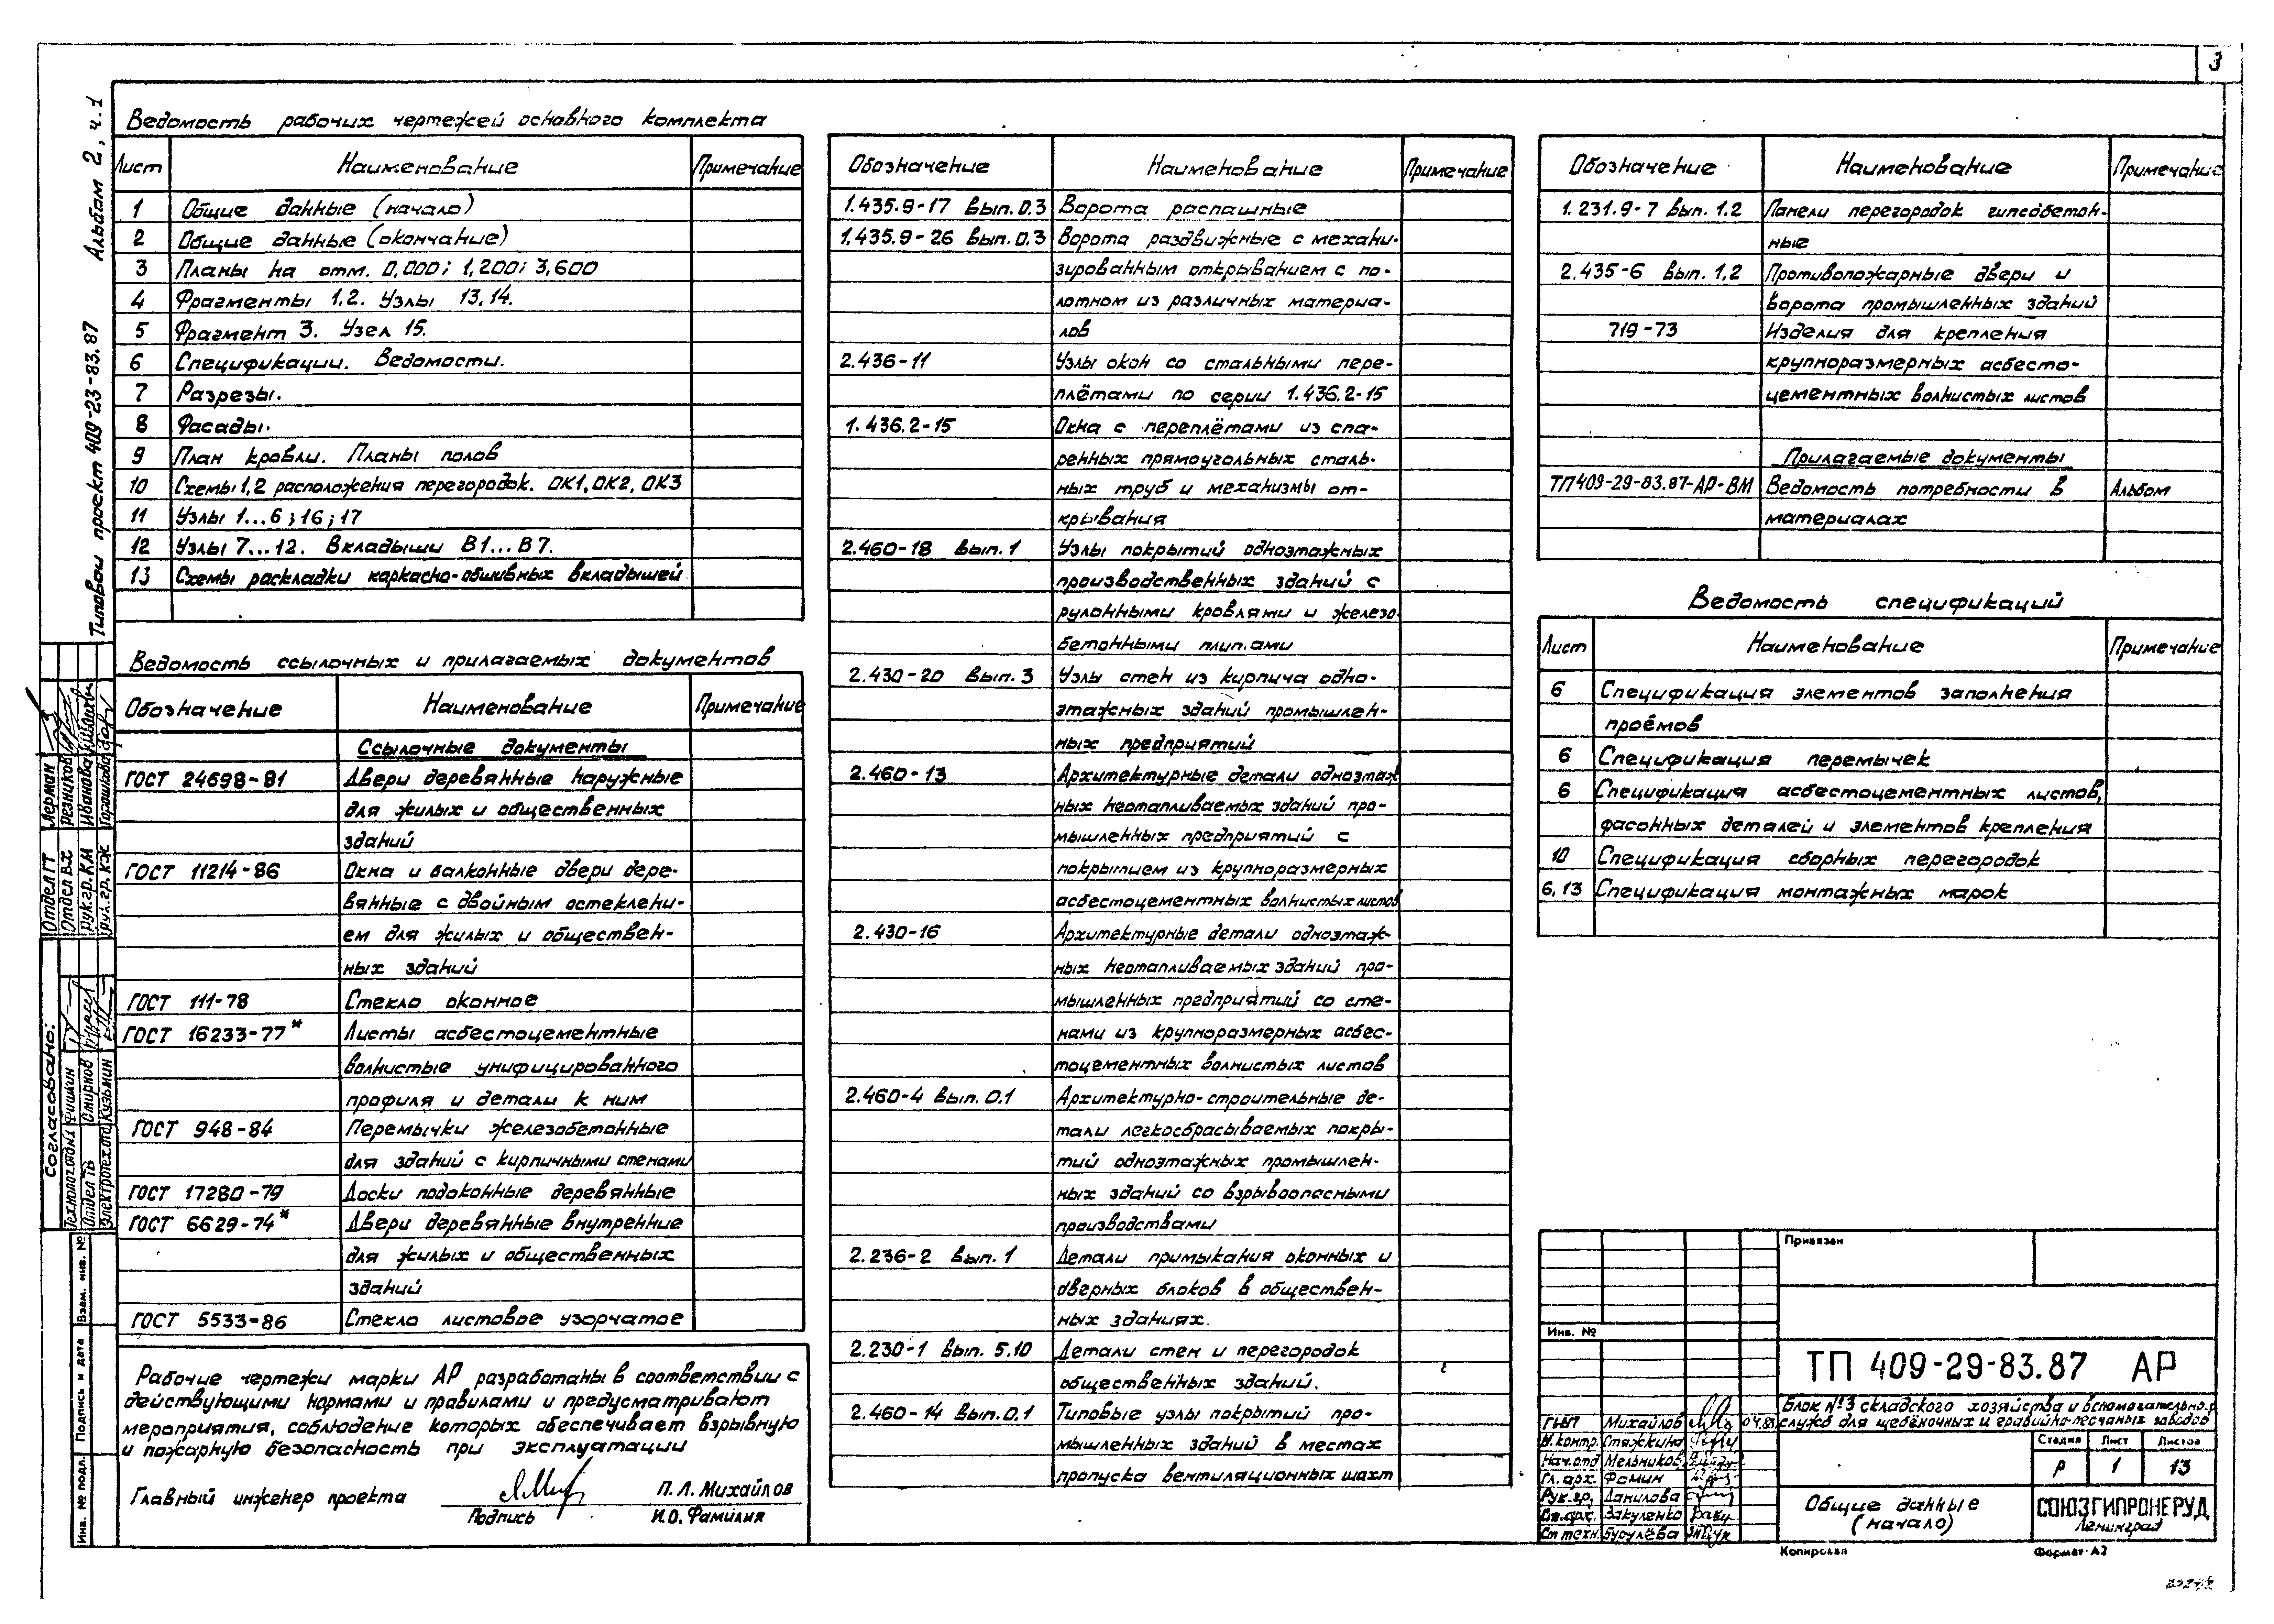 3
Альбом 2, ч. 1
Типовой проект 409-23-83.87
Ведомость рабочих чертежей основного комплекта
Лист Наименование Примечание
1 Общие данные (начало)
2 Общие данные (окончание)
3 Планы на отм. 0,000; 1,200; 3,600
4 Фрагменты 1,2. Узлы 13,14.
5 Фрагмент 3. Узел 15.
6 Спецификации. Ведомости.
7 Разрезы.
8 Фасады.
9 План кровли. Планы полов
10 Схемы 1,2 расположения перегородок. ОК1, ОК2, ОК3
11 Узлы 1...6; 16; 17
12 Узлы 7...12. Вкладыши В1...В7.
13 Схемы раскладки каркасно-обшивных вкладышей
Ведомость ссылочных и прилагаемых документов
Обозначение Наименование Примечание
Ссылочные документы
ГОСТ 24698-81 Двери деревянные наружные
для жилых и общественных
зданий
ГОСТ 11214-86 Окна и балконные двери дере-
вянные с двойным остеклени-
ем для жилых и обществен-
ных зданий
ГОСТ 111-78 Стекло оконное
ГОСТ 16233-77* Листы асбестоцементные
волнистые унифицированного
профиля и детали к ним
ГОСТ 948-84 Перемычки железобетонные
для зданий с кирпичными стенами
ГОСТ 17280-79 Доски подоконные деревянные
ГОСТ 6629-74* Двери деревянные внутренние
для жилых и общественных
зданий
ГОСТ 5533-86 Стекло листовое узорчатое
Рабочие чертежи марки АР разработаны в соответствии с
действующими нормами и правилами и предусматривают
мероприятия, соблюдение которых обеспечивает взрывную
и пожарную безопасность при эксплуатации
Главный инженер проекта П.Л. Михайлов
Подпись И.О. Фамилия
Обозначение Наименование Примечание
1.435.9-17 вып. 0.3 Ворота распашные
1.435.9-26 вып. 0.3 Ворота раздвижные с механи-
зированным открыванием с по-
лотном из различных материа-
лов
2.436-11 Узлы окон со стальными пере-
плётами по серии 1.436.2-15
1.436.2-15 Окна с переплётами из спа-
ренных прямоугольных сталь-
ных труб и механизмы от-
крывания
2.460-18 вып. 1 Узлы покрытий одноэтажных
производственных зданий с
рулонными кровлями и железо-
бетонными плитами
2.430-20 вып. 3 Узлы стен из кирпича одно-
этажных зданий промышлен-
ных предприятий
2.460-13 Архитектурные детали одноэтаж
ных неотапливаемых зданий про-
мышленных предприятий с
покрытием из крупноразмерных
асбестоцементных волнистых листов
2.430-16 Архитектурные детали одноэтаж-
ных неотапливаемых зданий про-
мышленных предприятий со сте-
нами из крупноразмерных асбес-
тоцементных волнистых листов
2.460-4 вып. 0.1 Архитектурно-строительные де-
тали легкосбрасываемых покры-
тий одноэтажных промышлен-
ных зданий со взрывоопасными
производствами
2.236-2 вып. 1 Детали примыкания оконных и
дверных блоков в обществен-
ных зданиях.
2.230-1 вып. 5.10 Детали стен и перегородок
общественных зданий.
2.460-14 вып. 0.1 Типовые узлы покрытий про-
мышленных зданий в местах
пропуска вентиляционных шахт
Обозначение Наименование Примечание
1.231.9-7 вып. 1.2 Панели перегородок гипсобетон-
ные
2.435-6 вып. 1.2 Противопожарные двери и
ворота промышленных зданий
719-73 Изделия для крепления
крупноразмерных асбесто-
цементных волнистых листов
Прилагаемые документы
ТП409-29-83.87-АР-ВМ Ведомость потребности в Альбом
материалах
Ведомость спецификаций
Лист Наименование Примечание
6 Спецификация элементов заполнения
проёмов
6 Спецификация перемычек
6 Спецификация асбестоцементных листов,
фасонных деталей и элементов крепления
10 Спецификация сборных перегородок
6, 13 Спецификация монтажных марок
Согласовано:
Отдел ГТ Лерман
Отдел ВХ Резников
Рук.гр. КМ Иванова
Рук.гр. КЖ Горошкова
Фишкин
Отдел ТБ Смирнов
Электротехотд Кузьмин
Инв. № подл. Подпись и дата Взам. инв. №
Привязан
Инв. №
ТП 409-29-83.87 АР
Блок №3 складского хозяйства и вспомогательных
служб для щебёночных и гравийно-песчаных заводов
Михайлов 04.88
Н.контр. Стяжкина
Нач.отд Мельников
Гл.арх. Фомин
Рук.гр. Данилова
Ст.арх. Закуленко
Ст техн. Бурулёва
Стадия Лист Листов
Р 1 13
Общие данные
(начало)
СОЮЗГИПРОНЕРУД
Ленинград
Копировал Формат А2